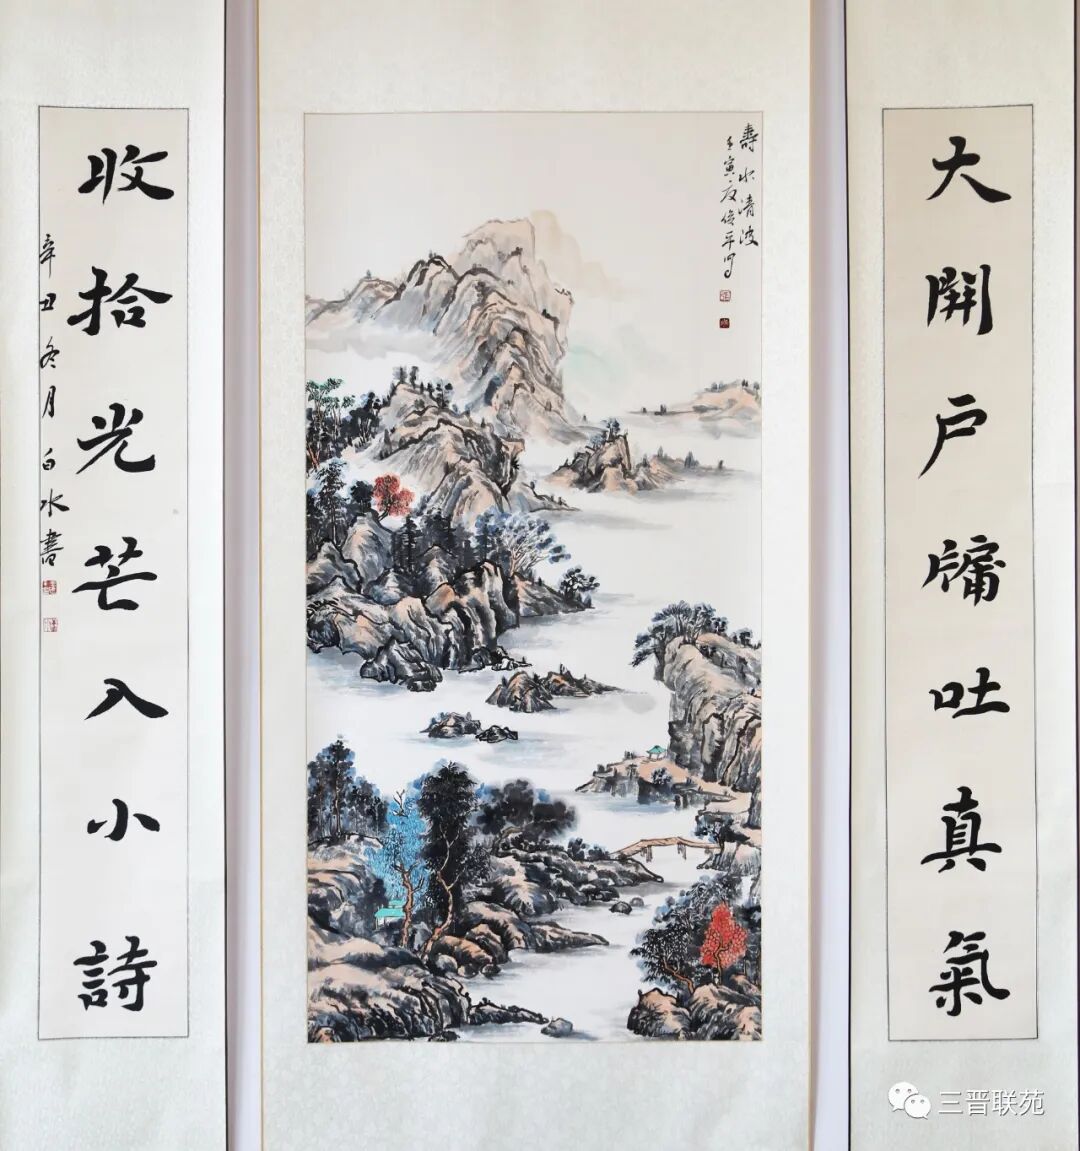 大開戶牖吐真氣
壽水清波
壬寅夏俊平写
收拾光芒入小詩
辛丑冬月白水書
三晋联苑